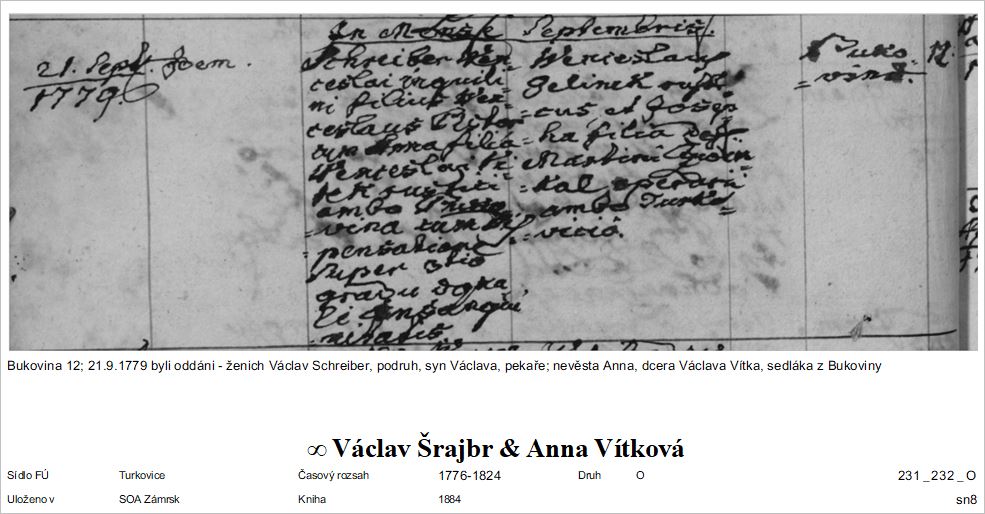 In Mense Septembris.
21. Sept. Idem.
1779.
Schreiber Wen
ceslai inquili
ni filius Wen
ceslaus
Anna filia
Wenceslai Vi
tek rustici
ambo Buko
vina cum dis
pensatione
super 3tio
gradu
li consangui
nitatis
Wenceslaus
Jelinek rusti
cus, et Josep
ha filia
Martini
operarii
ambo Turko
vicio.
Buko
vina.
12.
Bukovina 12; 21.9.1779 byli oddáni - ženich Václav Schreiber, podruh, syn Václava, pekaře; nevěsta Anna, dcera Václava Vítka, sedláka z Bukoviny
∞ Václav Šrajbr & Anna Vítková
Sídlo FÚ Turkovice Časový rozsah 1776-1824 Druh O 231_232_O
Uloženo v SOA Zámrsk Kniha 1884 sn8